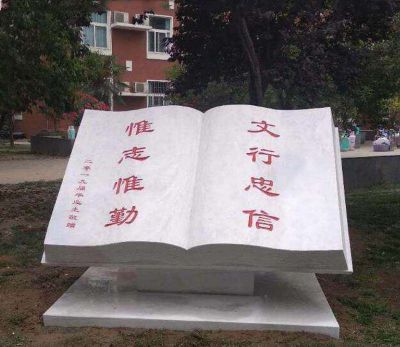 文行忠信
惟志惟勤
二零一九届毕业生敬赠